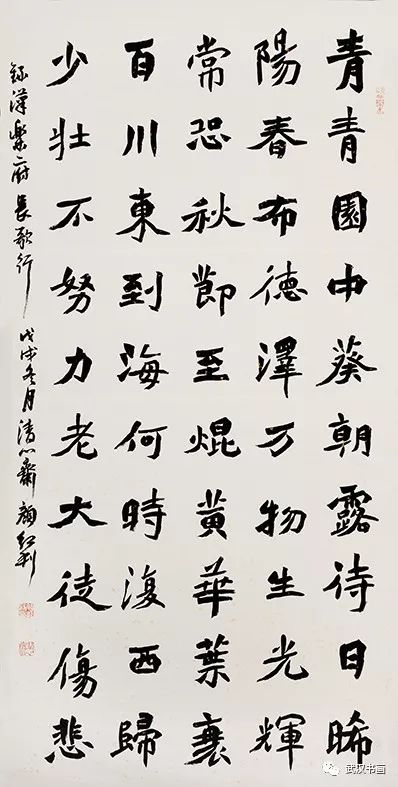 青青園中葵朝露待日晞
陽春布德澤万物生光輝
常恐秋節至焜黃華葉衰
百川東到海何時復西歸
少壯不努力老大徒傷悲
錄漢樂府長歌行 戊戌冬月清心齋 顏紅利
武汉书画